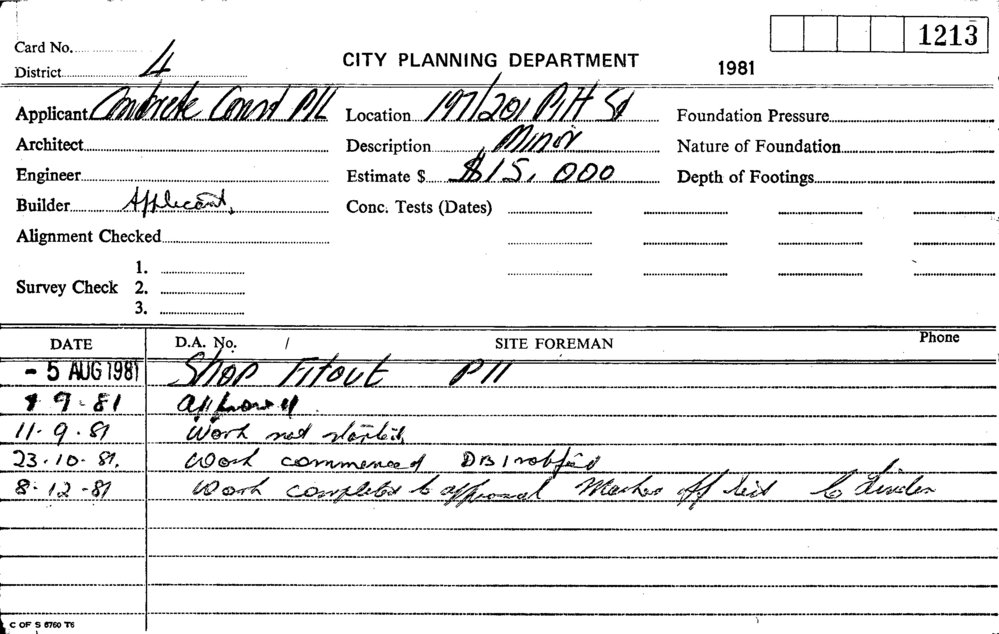 1213
Card No.
District 4
CITY PLANNING DEPARTMENT 1981
Applicant Concrete Const P/L Location 197/201 Pitt St Foundation Pressure
Architect Description Minor Nature of Foundation
Engineer Estimate $ $15,000 Depth of Footings
Builder Applicant. Conc. Tests (Dates)
Alignment Checked
1.
Survey Check 2.
3.
DATE D.A. No. / SITE FOREMAN Phone
- 5 AUG 1981 Shop Fitout P11
9-81 approved.
11-9.81 Work not started.
23.10.81. Work commenced
8-12-81 Work completed to approval
C OF S 6760 T6